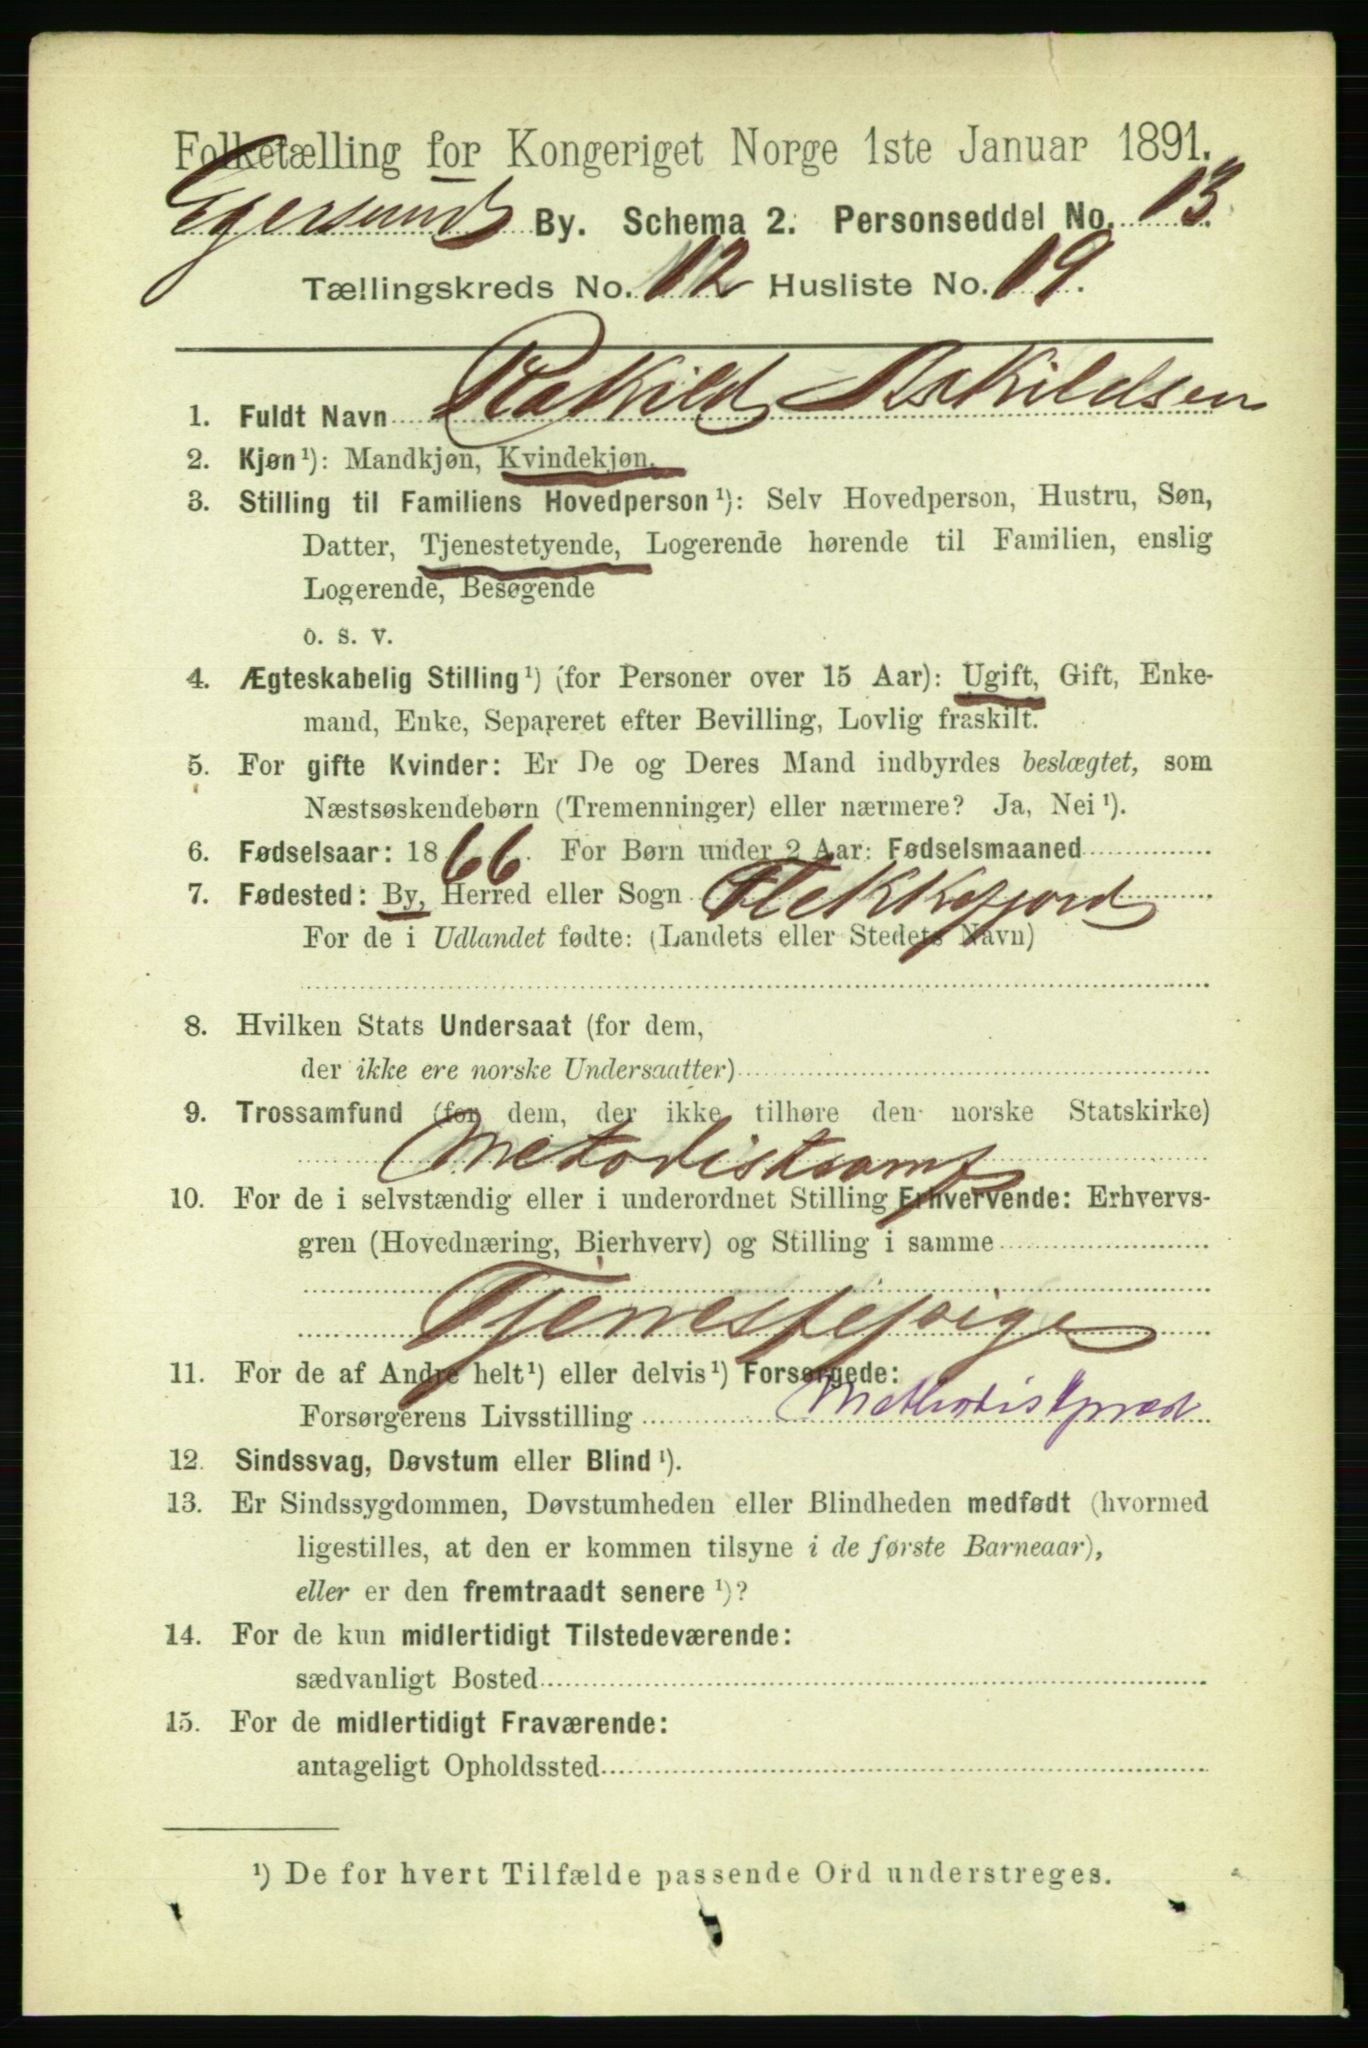 Folketælling for Kongeriget Norge 1ste Januar 1891.
Egersund By. Schema 2. Personseddel No. 13.
Tællingskreds No. 12 Husliste No. 19.
1. Fuldt Navn Askildsen
2. Kjøn ¹): Mandkjøn, Kvindekjøn.
3. Stilling til Familiens Hovedperson ¹): Selv Hovedperson, Hustru, Søn,
Datter, Tjenestetyende, Logerende hørende til Familien, enslig
Logerende, Besøgende
o. s. v.
4. Ægteskabelig Stilling ¹) (for Personer over 15 Aar): Ugift, Gift, Enke-
mand, Enke, Separeret efter Bevilling, Lovlig fraskilt.
5. For gifte Kvinder: Er De og Deres Mand indbyrdes beslægtet, som
Næstsøskendebørn (Tremenninger) eller nærmere? Ja, Nei ¹).
6. Fødselsaar: 1866. For Børn under 2 Aar: Fødselsmaaned
7. Fødested: By, Herred eller Sogn Flekkefjord
For de i Udlandet fødte: (Landets eller Stedets Navn)
8. Hvilken Stats Undersaat (for dem,
der ikke ere norske Undersaatter)
9. Trossamfund (for dem, der ikke tilhøre den norske Statskirke)
Metodistsamf
10. For de i selvstændig eller i underordnet Stilling Erhvervende: Erhvervs-
gren (Hovednæring, Bierhverv) og Stilling i samme
Tjenestepige
11. For de af Andre helt ¹) eller delvis ¹) Forsørgede:
Forsørgerens Livsstilling Methodistpræd
12. Sindssvag, Døvstum eller Blind ¹).
13. Er Sindssygdommen, Døvstumheden eller Blindheden medfødt (hvormed
ligestilles, at den er kommen tilsyne i de første Barneaar),
eller er den fremtraadt senere ¹)?
14. For de kun midlertidigt Tilstedeværende:
sædvanligt Bosted
15. For de midlertidigt Fraværende:
antageligt Opholdssted
¹) De for hvert Tilfælde passende Ord understreges.